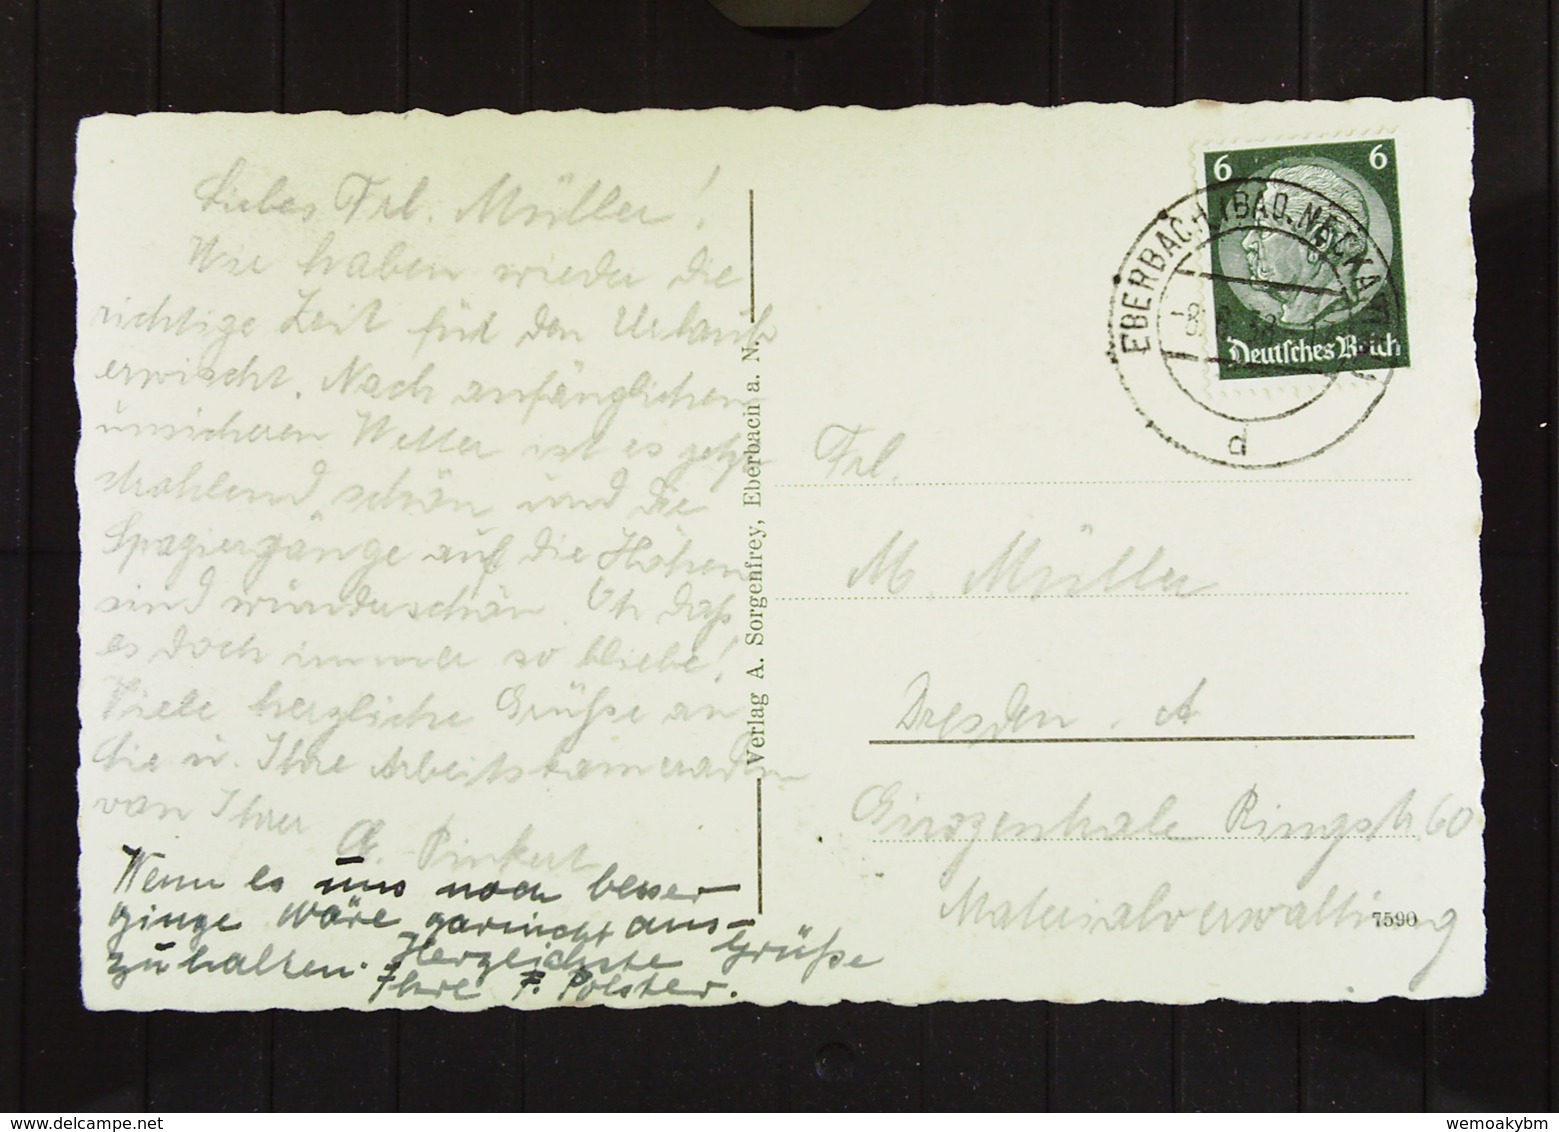 Liebes Frl. Müller!
Wir haben wieder die
richtige Zeit für den Urlaub
erwischt. Nach anfänglichem
unsicheren Wetter ist es jetzt
strahlend schön und die
Spaziergänge auf die Höhen
sind wunderschön. Oh daß
es doch immer so bliebe!
Viele herzliche Grüße an
Sie u. Ihre Arbeitskameraden
von Ihrer
Pinkert
Wenn es uns noch besser
ginge wäre garnicht aus-
zuhalten. Herzlichste Grüße
Ihre F. Polster.
Verlag A. Sorgenfrey, Eberbach a. N.
6 6
Deutsches Reich
EBERBACH (BAD. NECKARTAL)
d
Frl.
M. Müller
Dresden. A
Girozentrale Ringstr 60
Materialverwaltung
7590
wemoakybm